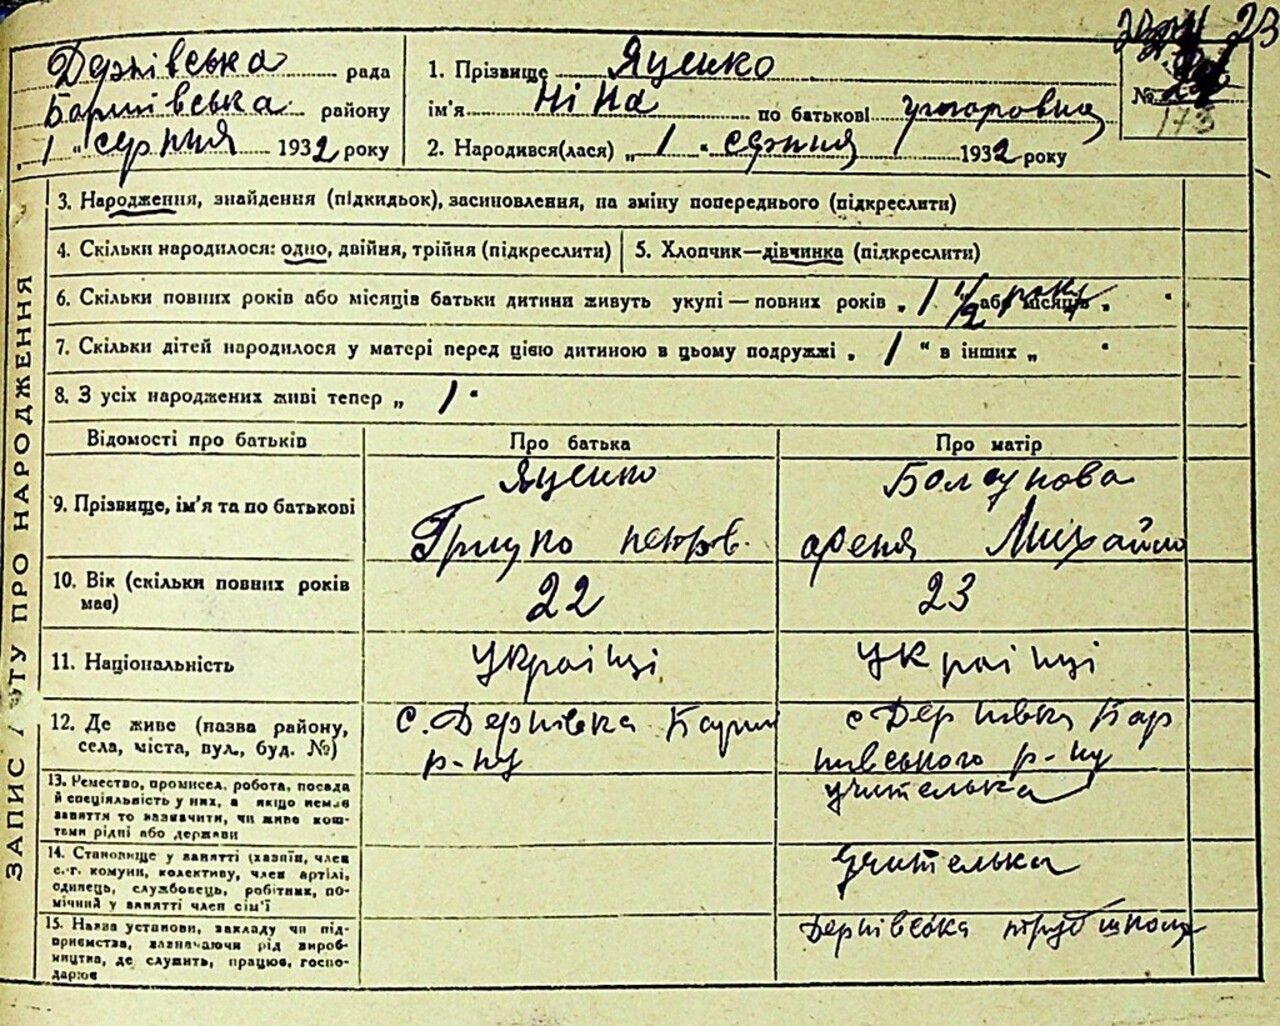 23
Дернівська рада
Баришівська району
„ 1 “ серпня 1932 року
1. Прізвище Яценко
ім'я Ніна по батькові
2. Народився(лася) „ 1 “ серпня 1932 року
№
173
ЗАПИС АКТУ ПРО НАРОДЖЕННЯ
3. Народження, знайдення (підкидьок), засиновлення, на зміну попереднього (підкреслити)
4. Скільки народилося: одно, двійня, трійня (підкреслити)
5. Хлопчик—дівчинка (підкреслити)
6. Скільки повних років або місяців батьки дитини живуть укупі — повних років „ 1 1/2 року “ або місяців „ “
7. Скільки дітей народилося у матері перед цією дитиною в цьому подружжі „ 1 “ в інших „ “
8. З усіх народжених живі тепер „ 1 “
Відомості про батьків
Про батька
Про матір
9. Прізвище, ім'я та по батькові
Яценко
Грицко петров.
Болсунова
Михайло
10. Вік (скільки повних років має)
22
23
11. Національність
Україці
Україці
12. Де живе (назва району, села, міста, вул., буд. №)
с. Дернівка Бариш
р-ну
с Дернівка Бар
шивського р-ну
13. Ремество, промисел, робота, посада
й спеціяльність у них, а якщо немає
заняття то зазначити, чи живе кош-
тами рідні або держави
учителька
14. Становище у занятті (хазяїн, член
с.-г. комуни, колективу, член артілі,
одинець, службовець, робітник, по-
мічний у занятті член сім'ї
Учителька
15. Назва установи, закладу чи під-
приємства, зазначаючи рід вироб-
ництва, де служить, працює, госпо-
дарює
Дернівська школа